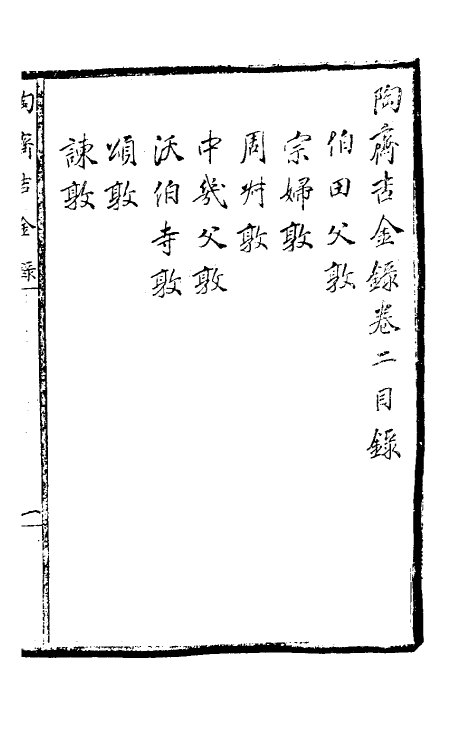 陶齋吉金錄卷二目錄
伯田父敦
宗婦敦
周艸敦
中幾父敦
沃伯寺敦
頌敦
諫敦
陶齋吉金錄
一